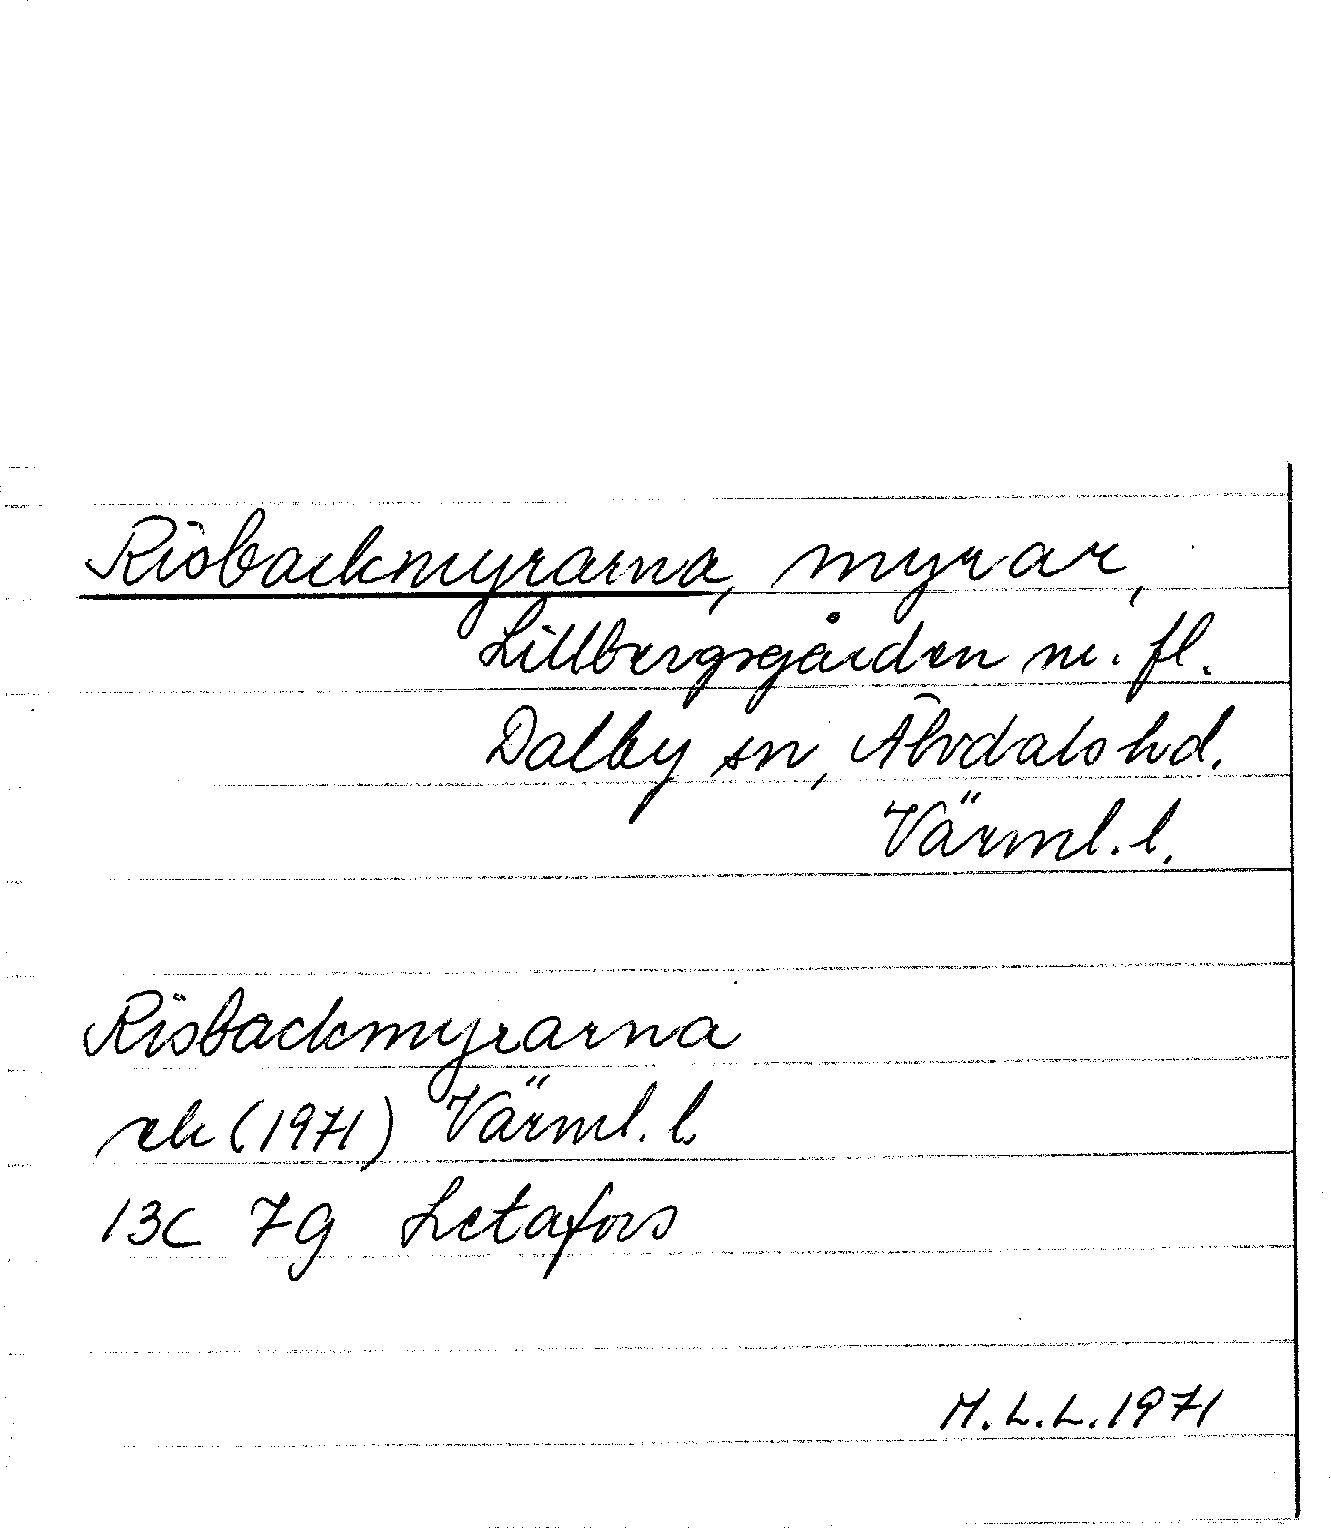 Risbackmyrarna, myrar,
Lillbergsgården m. fl.
Dalby sn, Älvdals hd.
Värml. l.
Risbackmyrarna
rek (1971) Värml. l.
13C 7g Letafors
M.L.L. 1971